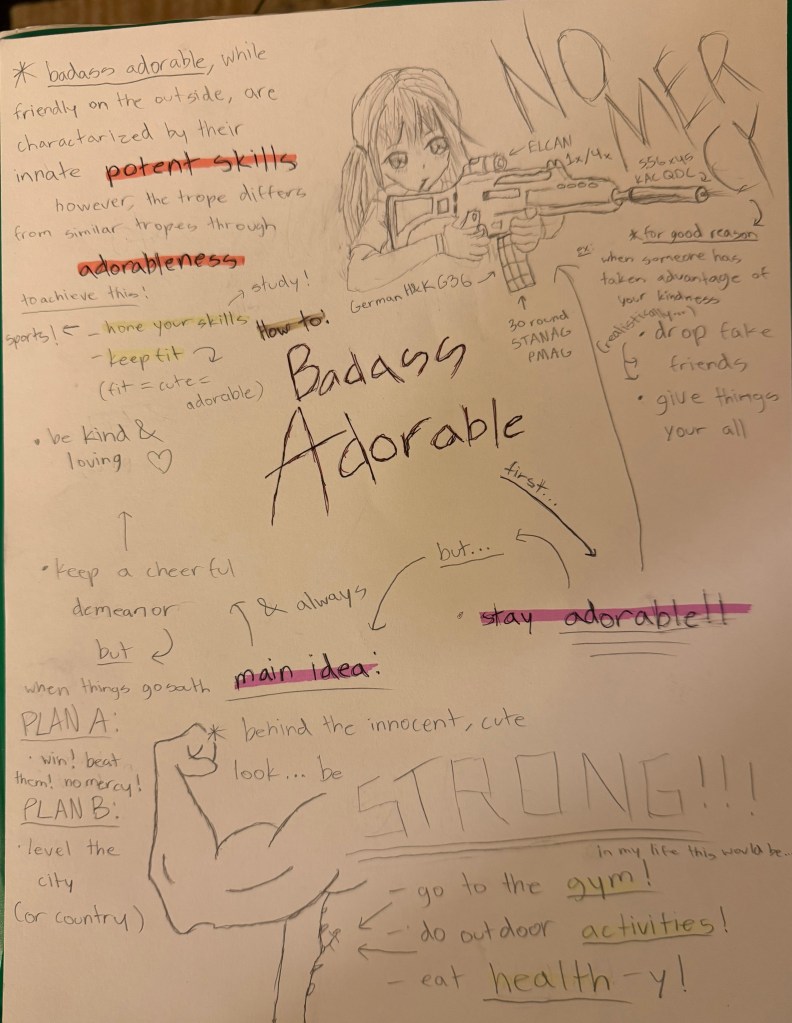 * badass adorable, while
friendly on the outside, are
charactarized by their
innate potent skills
however, the trope differs
from similar tropes through
adorableness
to achieve this!
study!
sports! ← - hone your skills
- keep fit
(fit = cute =
adorable)
• be kind &
loving ♡
• keep a cheerful
demeanor
but
when things go south
PLAN A:
• win! beat
them! no mercy!
PLAN B:
• level the
city
(or country)
NO
MERCY
ELCAN
1x/4x
556x45
KAC QDC
German H&K G36
30 round
STANAG
PMAG
* for good reason
ex:
when someone has
taken advantage of
your kindness
(realistically...)
• drop fake
friends
• give things
your all
How to:
Badass
Adorable
first...
but...
& always
• stay adorable!!
main idea:
* behind the innocent, cute
look... be
STRONG!!!
in my life this would be...
- go to the gym!
- do outdoor activities!
- eat health-y!